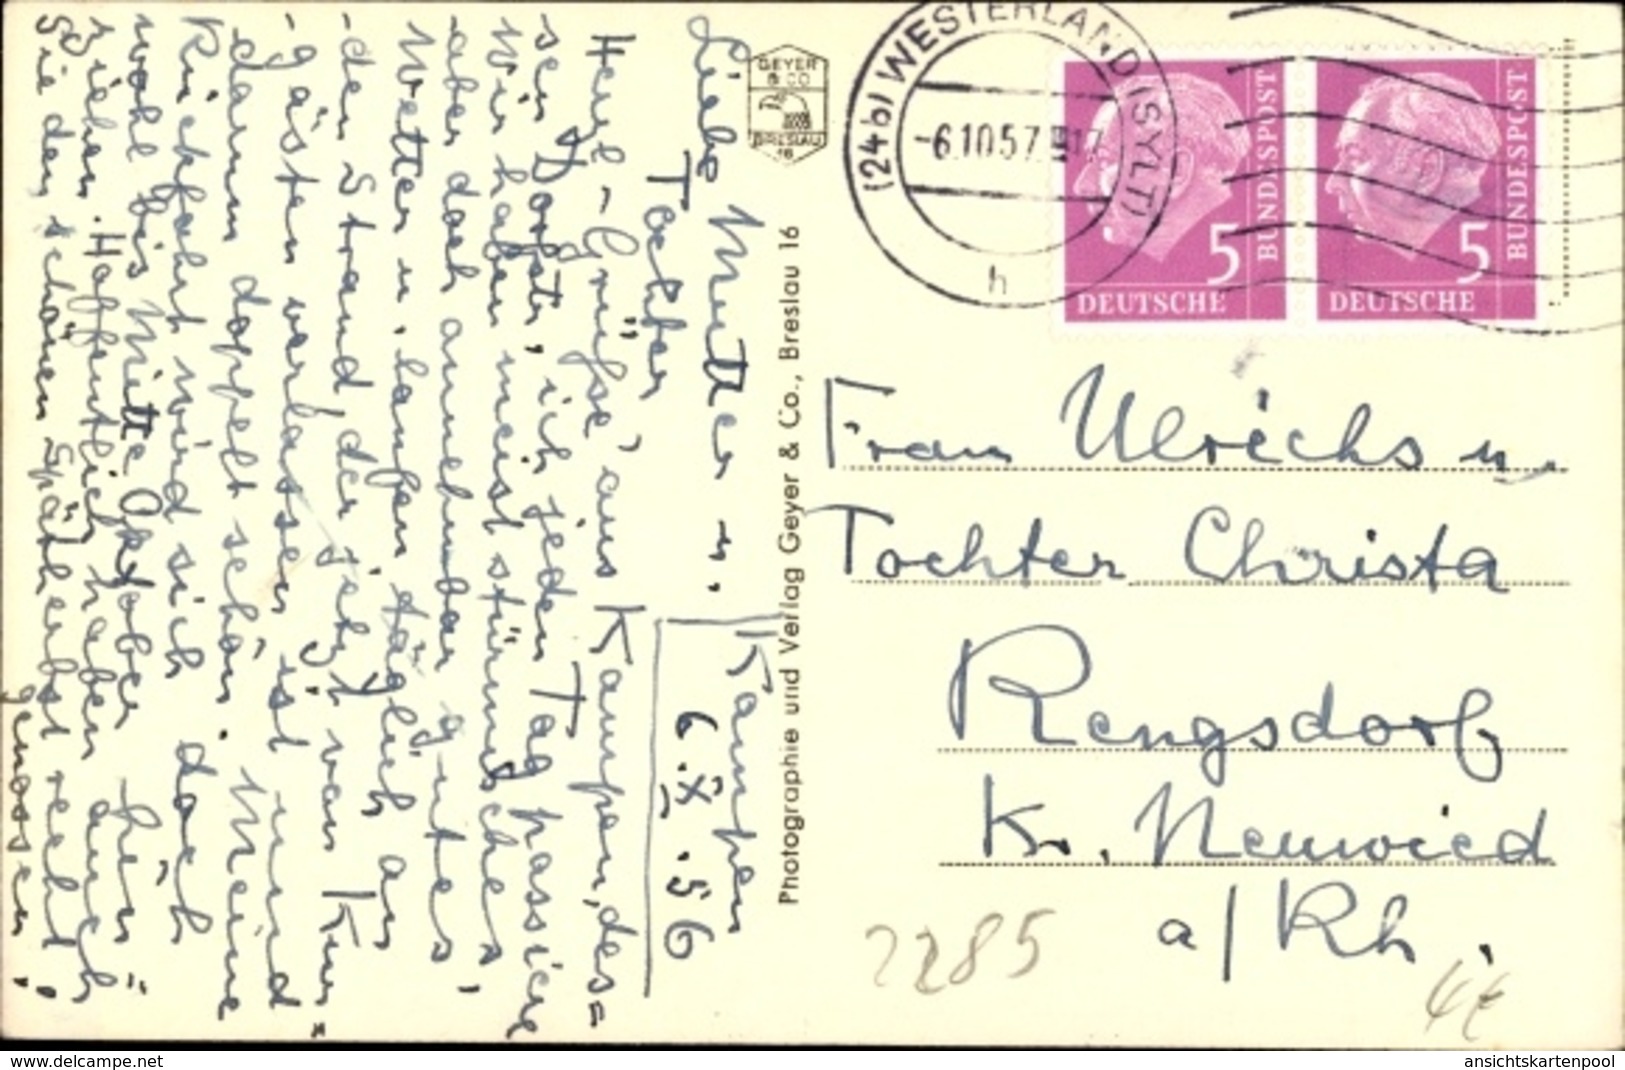 Kampen
6.X.56
Liebe Mutter u.
Tochter
Herzl-Grüße aus Kampen, des=
sen Dorfstr. ich jeden Tag passiere
Wir haben meist stürmisches
aber doch annehmbar gutes
Wetter u. laufen täglich an
-den Strand, der jetzt von Kur"
-gästen verlassen ist und
darum doppelt schön. Meine
Rückfahrt wird sich doch
wohl bis Mitte Oktober hin"
ziehen. Hoffentlich haben auch
Sie den schönen Spätherbst recht
genossen.
GEYER
& CO
BRESLAU
16
Photographie und Verlag Geyer & Co., Breslau 16
(24b) WESTERLAND (SYLT)
-6.10.57.
h
5 BUNDESPOST
DEUTSCHE
5 BUNDESPOST
DEUTSCHE
Frau Ulrichs u.
Tochter Christa
Rengsdorf
Kr. Neuwied
a/Rh.
2285
4€
delcampe.net
ansichtskartenpool